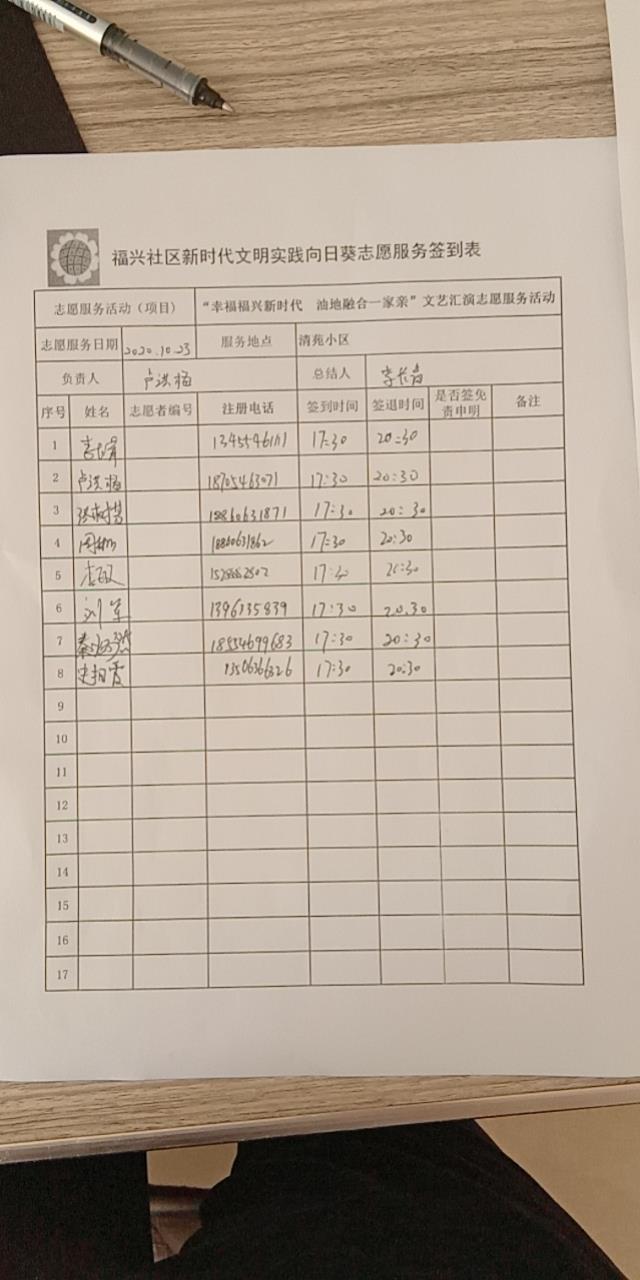 福兴社区新时代文明实践向日葵志愿服务签到表
志愿服务活动（项目） “幸福福兴新时代 油地融合一家亲”文艺汇演志愿服务活动
志愿服务日期 2020.10.23 服务地点 清苑小区
负责人 卢洪梅 总结人
序号 姓名 志愿者编号 注册电话 签到时间 签退时间 是否签免责申明 备注
1 17:30 20:30
2 卢洪梅 18705463071 17:30 20:30
3 18860631871 17:30 20:30
4 18860631862 17:30 20:30
5 17:30 20:30
6 刘军 1396135839 17:30 20.30
7 18554699683 17:30 20:30
8 17:30 20:30
9
10
11
12
13
14
15
16
17